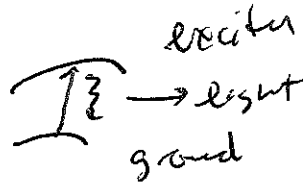 excited
→ light
ground